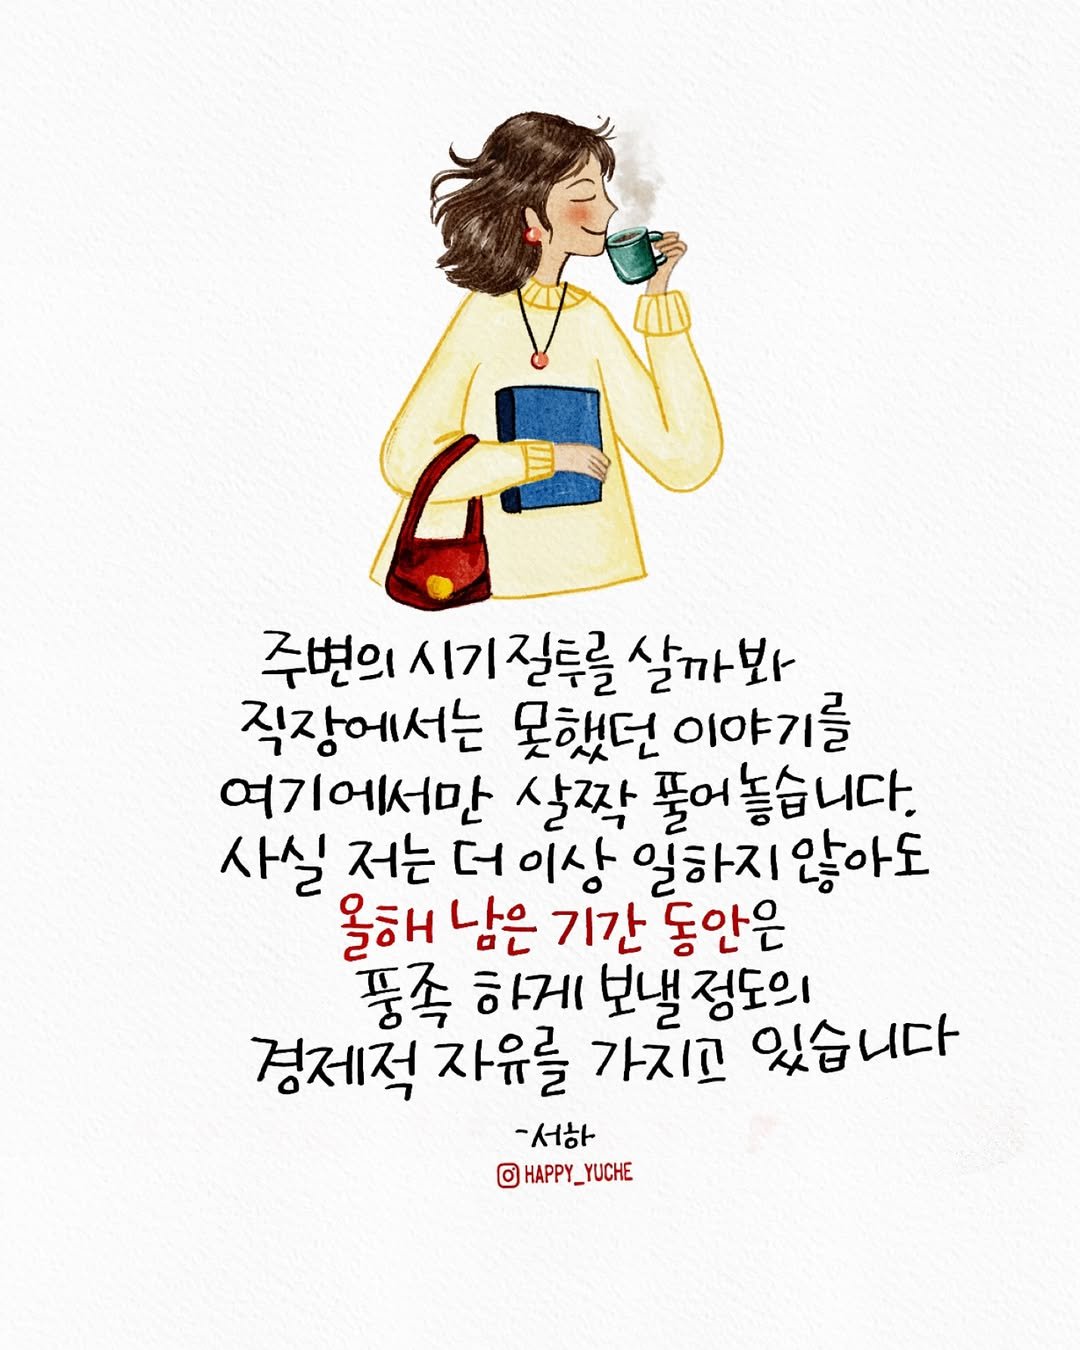 주변의 시기 질투를 살까봐
직장에서는 못했던 이야기를
여기에서만 살짝 풀어놓습니다.
사실 저는 더 이상 일하지 않아도
올해 남은 기간 동안은
풍족 하게 보낼 정도의
경제적 자유를 가지고 있습니다
-서하
HAPPY_YUCHE